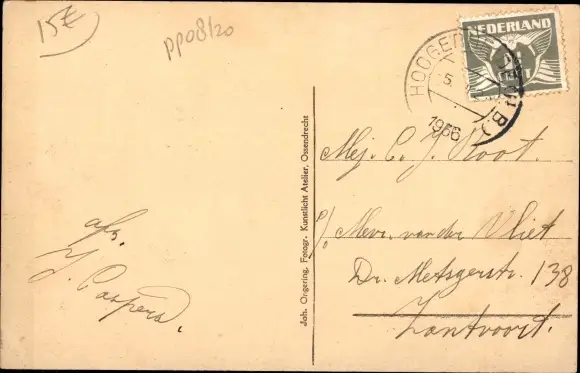 15€
pp08/20
NEDERLAND
CENT
HOOGE
(N.B.)
5
1936
Mej. C. J. Koot.
p/ Mevr. van der Vliet
Dr. Metsgerstr. 138
Zantvoort.
afz.
J. Caspers.
Joh. Ongering, Fotogr. Kunstlicht Atelier, Ossendrecht